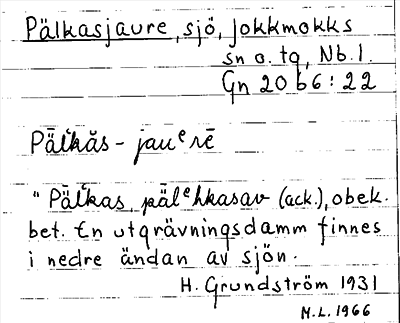 Pälkasjaure, sjö, Jokkmokks
sn o. tg, Nb. l.
Gn 20 b6:22
Pälkăs-jauᵉrē
"Pälkas, pälᵉhkasav (ack.), obek.
bet. En utgrävningsdamm finnes
i nedre ändan av sjön.
H. Grundström 1931
M.L. 1966